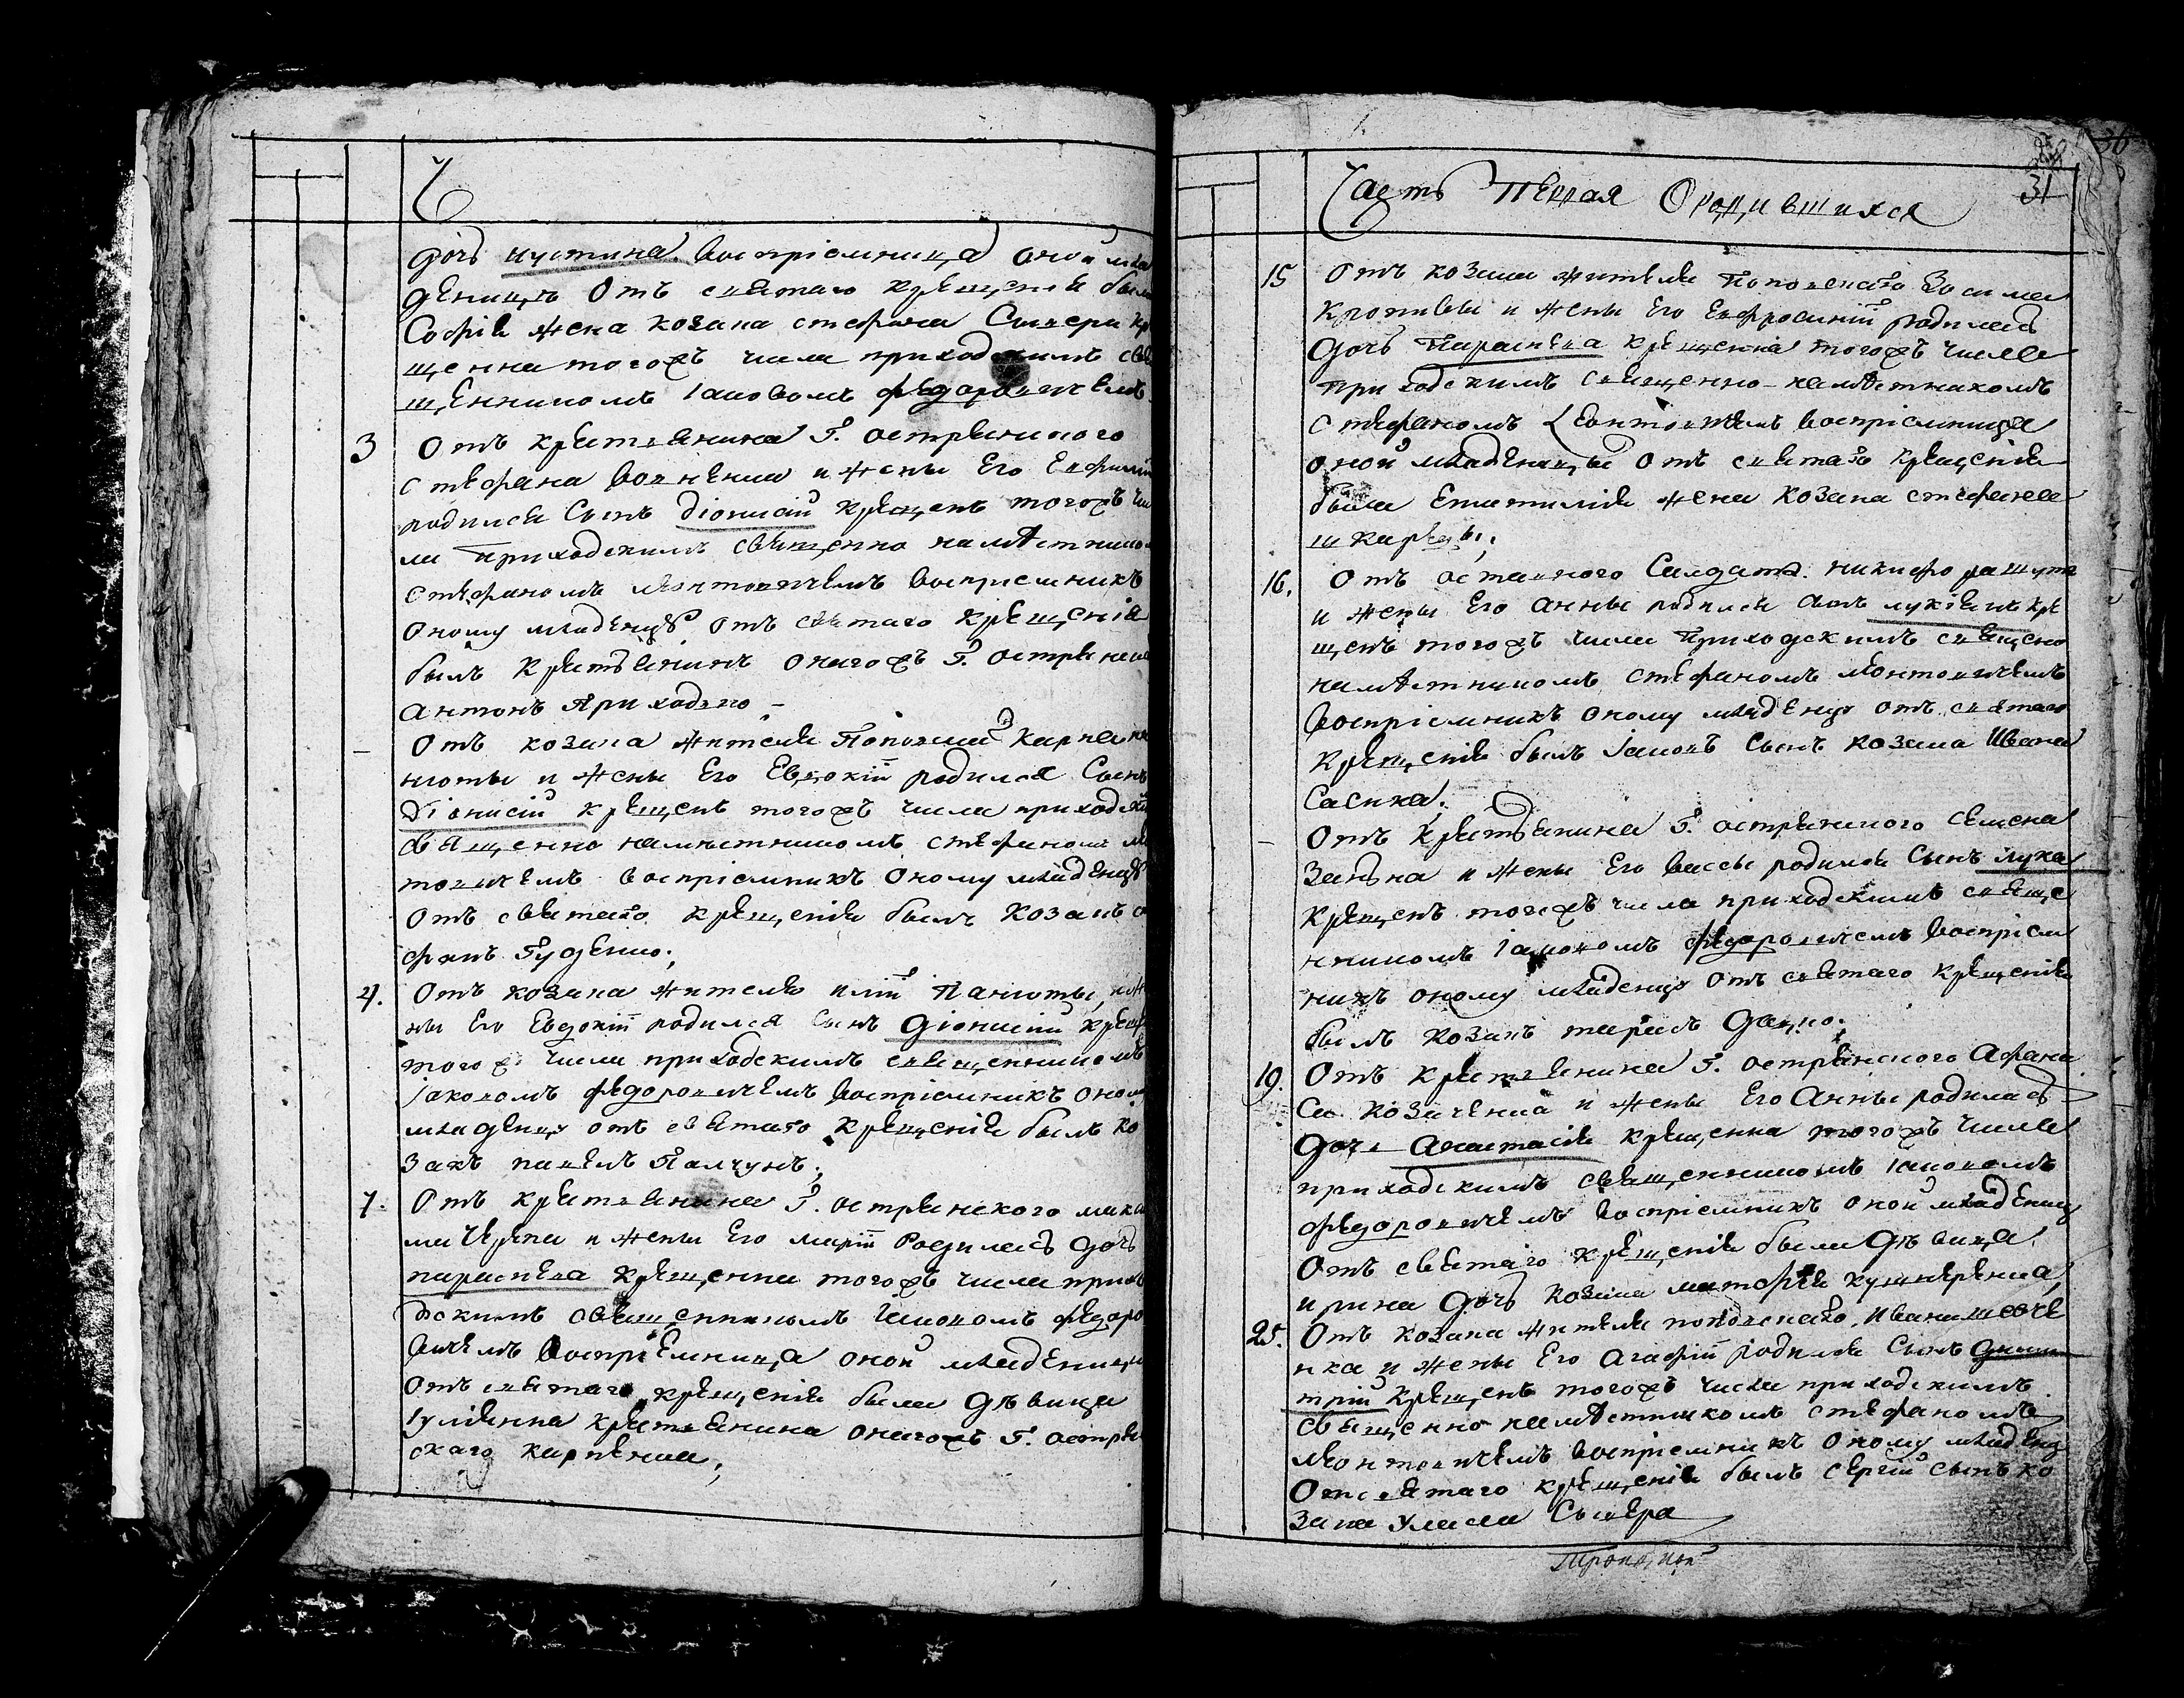 Ч
дочь иустина воспріемница оной мла
деницѣ Отъ святаго крещенія была
Софія жена козака стефана
щенна тогожъ числа приходскимъ свя
щенникомъ Іаковомъ федоровичемъ
3 Отъ крестьянина Г. острянского
стефана и жены Его
родился Сынъ Діонисій крещенъ тогожъ чи
ла приходскимъ священно намѣстнико
стефаномъ леонтовичемъ воспріемникъ
оному младенцу отъ святаго крещенія
былъ крестьянинъ оногожъ Г.
антонъ Приходко
– Отъ козака жителя Карпа па
нюты и жены Его Евдокіи родился Сынъ
Діонисій крещенъ тогожъ числа приходски
священно намѣстникомъ стефаномъ
товичемъ воспріемникъ оному младенцу
отъ святаго крещенія былъ козакъ
фанъ Гуденко.
4. Отъ козака жителя иліи Панюты, и же
ны Его Евдокіи родился сынъ Діонисій креще
тогожъ числа приходскимъ священникомъ
Іаковомъ федоровичемъ воспріемникъ оном
младенцу отъ святаго крещенія былъ ко
закъ павелъ
7. Отъ крестьянина Г. острянского мака
ма и жены Его маріи Родилась дочъ
параскева крещенна тогожъ числа прихо
дскимъ священникомъ Іаковомъ федоро
вичемъ воспріемница оной младеници
отъ святаго крещенія была дѣвица
Іуліянна крестьянина оногожъ Г. острян
скаго карпенка;
Часть Первая О родившихся
31
36
15 Отъ козака жителя
и жены Его Евфросиніи родилась
дочь Параскева крещенна тогожъ числа
приходскимъ священно-намѣстникомъ
стефаномъ Леонтовичемъ воспріемница
оной младеницы отъ святаго крещенія
была жена козака стефана
16. Отъ отставного Салдата
и жены Его анны родился сынъ лукіянъ кре
щенъ тогожъ числа Приходскимъ священо
намѣстникомъ стефаномъ леонтовичемъ
воспріемникъ оному младенцу отъ святаго
крещенія былъ Іаковъ сынъ козака Ивана
– Отъ крестьянина Г. острянского семена
и жены Его вассы родился Сынъ лука
крещенъ тогожъ числа приходскимъ свяще
нникомъ Іаковомъ федоровичемъ воспріем
никъ оному младенцу отъ святаго крещенія
былъ козакъ тарасъ Дацко.
19. Отъ крестьянина Г. острянского Афана
са козаченка и жены Его Анны родилась
дочь анастасія крещенна тогожъ числа
приходскимъ священникомъ Іаковомъ
федоровичемъ воспріемникъ оной младениц
Отъ святаго крещенія была дѣвица
ирина дочь козака матфея кушнеренка
25. Отъ козака жителя Ивана шевче
нка и жены Его агафіи родился Сынъ дими
трій крещенъ тогожъ числа приходскимъ
священно намѣстникомъ стефаномъ
леонтовичемъ воспріемникъ оному младенц
Отъ святаго крещенія былъ сергій сынъ ко
зака